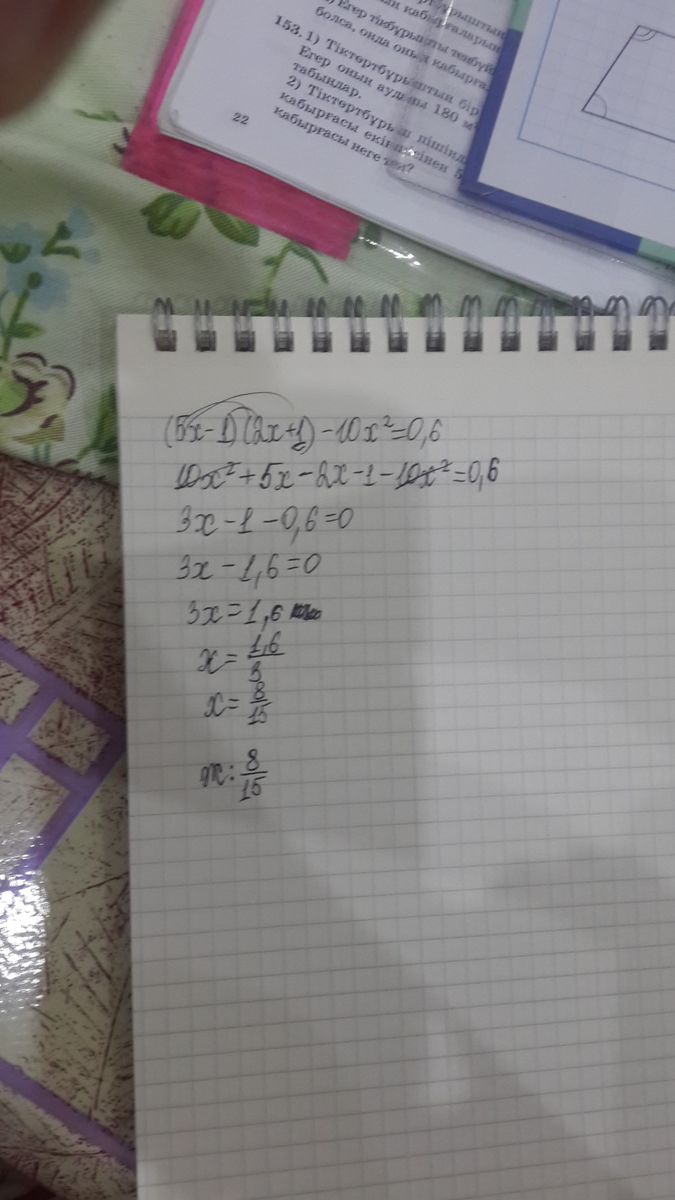 Егер тікбұрышты теңбүй
болса, онда оның қабырға
153. 1) Тіктөртбұрыштың бір
Егер оның ауданы 180 м
табыңдар.
2) Тіктөртбұрыш пішінд
қабырғасы екіншісінен 5
қабырғасы неге тең?
22
(5x-1)(2x+1)-10x²=0,6
10x²+5x-2x-1-10x²=0,6
3x-1-0,6=0
3x-1,6=0
3x=1,6
x=1,6/3
x=8/15
ж:8/15